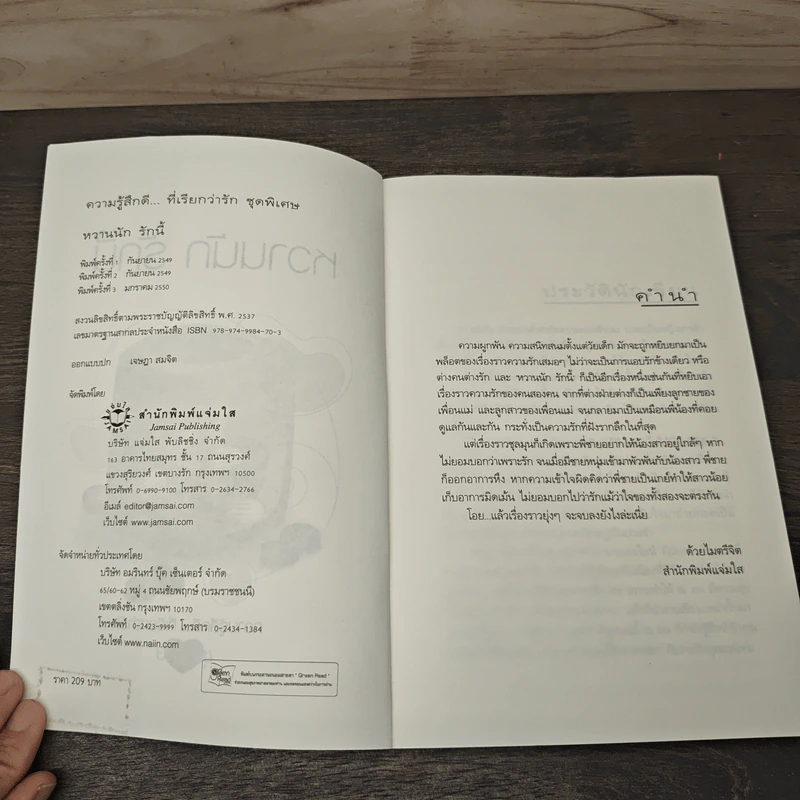 ความรู้สึกดี... ที่เรียกว่ารัก ชุดพิเศษ
หวานนัก รักนี้
พิมพ์ครั้งที่ 1 กันยายน 2549
พิมพ์ครั้งที่ 2 กันยายน 2549
พิมพ์ครั้งที่ 3 มกราคม 2550
สงวนลิขสิทธิ์ตามพระราชบัญญัติลิขสิทธิ์ พ.ศ. 2537
เลขมาตรฐานสากลประจำหนังสือ ISBN 978-974-9984-70-3
ออกแบบปก เจษฎา สมจิต
จัดพิมพ์โดย
สำนักพิมพ์แจ่มใส
Jamsai Publishing
บริษัท แจ่มใส พับลิชชิ่ง จำกัด
163 อาคารไทยสมุทร ชั้น 17 ถนนสุรวงศ์
แขวงสุริยวงศ์ เขตบางรัก กรุงเทพฯ 10500
โทรศัพท์ 0-6990-9100 โทรสาร 0-2634-2766
อีเมล์ editor@jamsai.com
เว็บไซต์ www.jamsai.com
จัดจำหน่ายทั่วประเทศโดย
บริษัท อมรินทร์ บุ๊ค เซ็นเตอร์ จำกัด
65/60-62 หมู่ 4 ถนนชัยพฤกษ์ (บรมราชชนนี)
เขตตลิ่งชัน กรุงเทพฯ 10170
โทรศัพท์ 0-2423-9999 โทรสาร 0-2434-1384
เว็บไซต์ www.naiin.com
ราคา 209 บาท
Green Read
พิมพ์บนกระดาษถนอมสายตา " Green Read "
คำนำ
ความผูกพัน ความสนิทสนมตั้งแต่วัยเด็ก มักจะถูกหยิบยกมาเป็น
พล็อตของเรื่องราวความรักเสมอๆ ไม่ว่าจะเป็นการแอบรักข้างเดียว หรือ
ต่างคนต่างรัก และ 'หวานนัก รักนี้' ก็เป็นอีกเรื่องหนึ่งเช่นกันที่หยิบเอา
เรื่องราวความรักของคนสองคน จากที่ต่างฝ่ายต่างก็เป็นเพียงลูกชายของ
เพื่อนแม่ และลูกสาวของเพื่อนแม่ จนกลายมาเป็นเหมือนพี่น้องที่คอย
ดูแลกันและกัน กระทั่งเป็นความรักที่ฝังรากลึกในที่สุด
แต่เรื่องราวชุลมุนก็เกิดเพราะพี่ชายอยากให้น้องสาวอยู่ใกล้ๆ หาก
ไม่ยอมบอกว่าเพราะรัก จนเมื่อมีชายหนุ่มเข้ามาพัวพันกับน้องสาว พี่ชาย
ก็ออกอาการหึง หากความเข้าใจผิดคิดว่าพี่ชายเป็นเกย์ทำให้สาวน้อย
เก็บอาการมิดเม้น ไม่ยอมบอกไปว่ารักแม้ว่าใจของทั้งสองจะตรงกัน
โอย...แล้วเรื่องราวยุ่งๆ จะจบลงยังไงล่ะเนี่ย
ด้วยไมตรีจิต
สำนักพิมพ์แจ่มใส